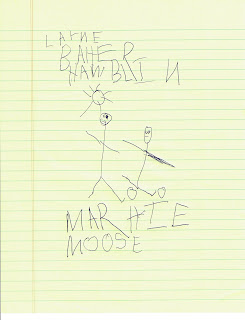 LAYNE
BAHER
HAWBLIN
MARHTIE
MOOSE